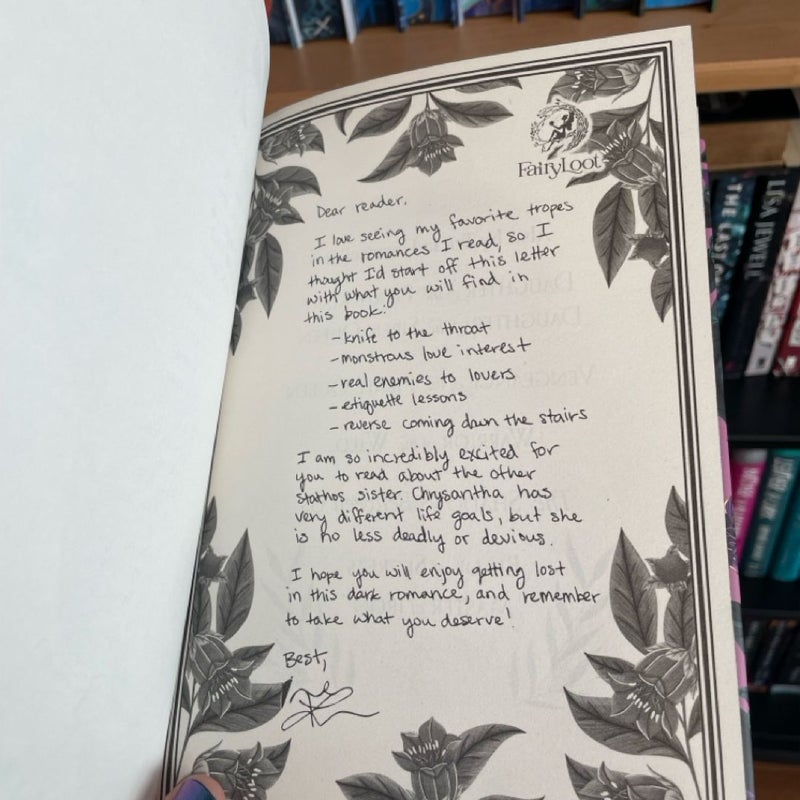 FairyLoot
Dear reader,
I love seeing my favorite tropes
in the romances I read, so I
thought I'd start off this letter
with what you will find in
this book:
- knife to the throat
- monstrous love interest
- real enemies to lovers
- etiquette lessons
- reverse coming down the stairs
I am so incredibly excited for
you to read about the other
Stathos sister. Chrysantha has
very different life goals, but she
is no less deadly or devious.
I hope you will enjoy getting lost
in this dark romance, and remember
to take what you deserve!
Best,
THE LAST
LISA JEWELL